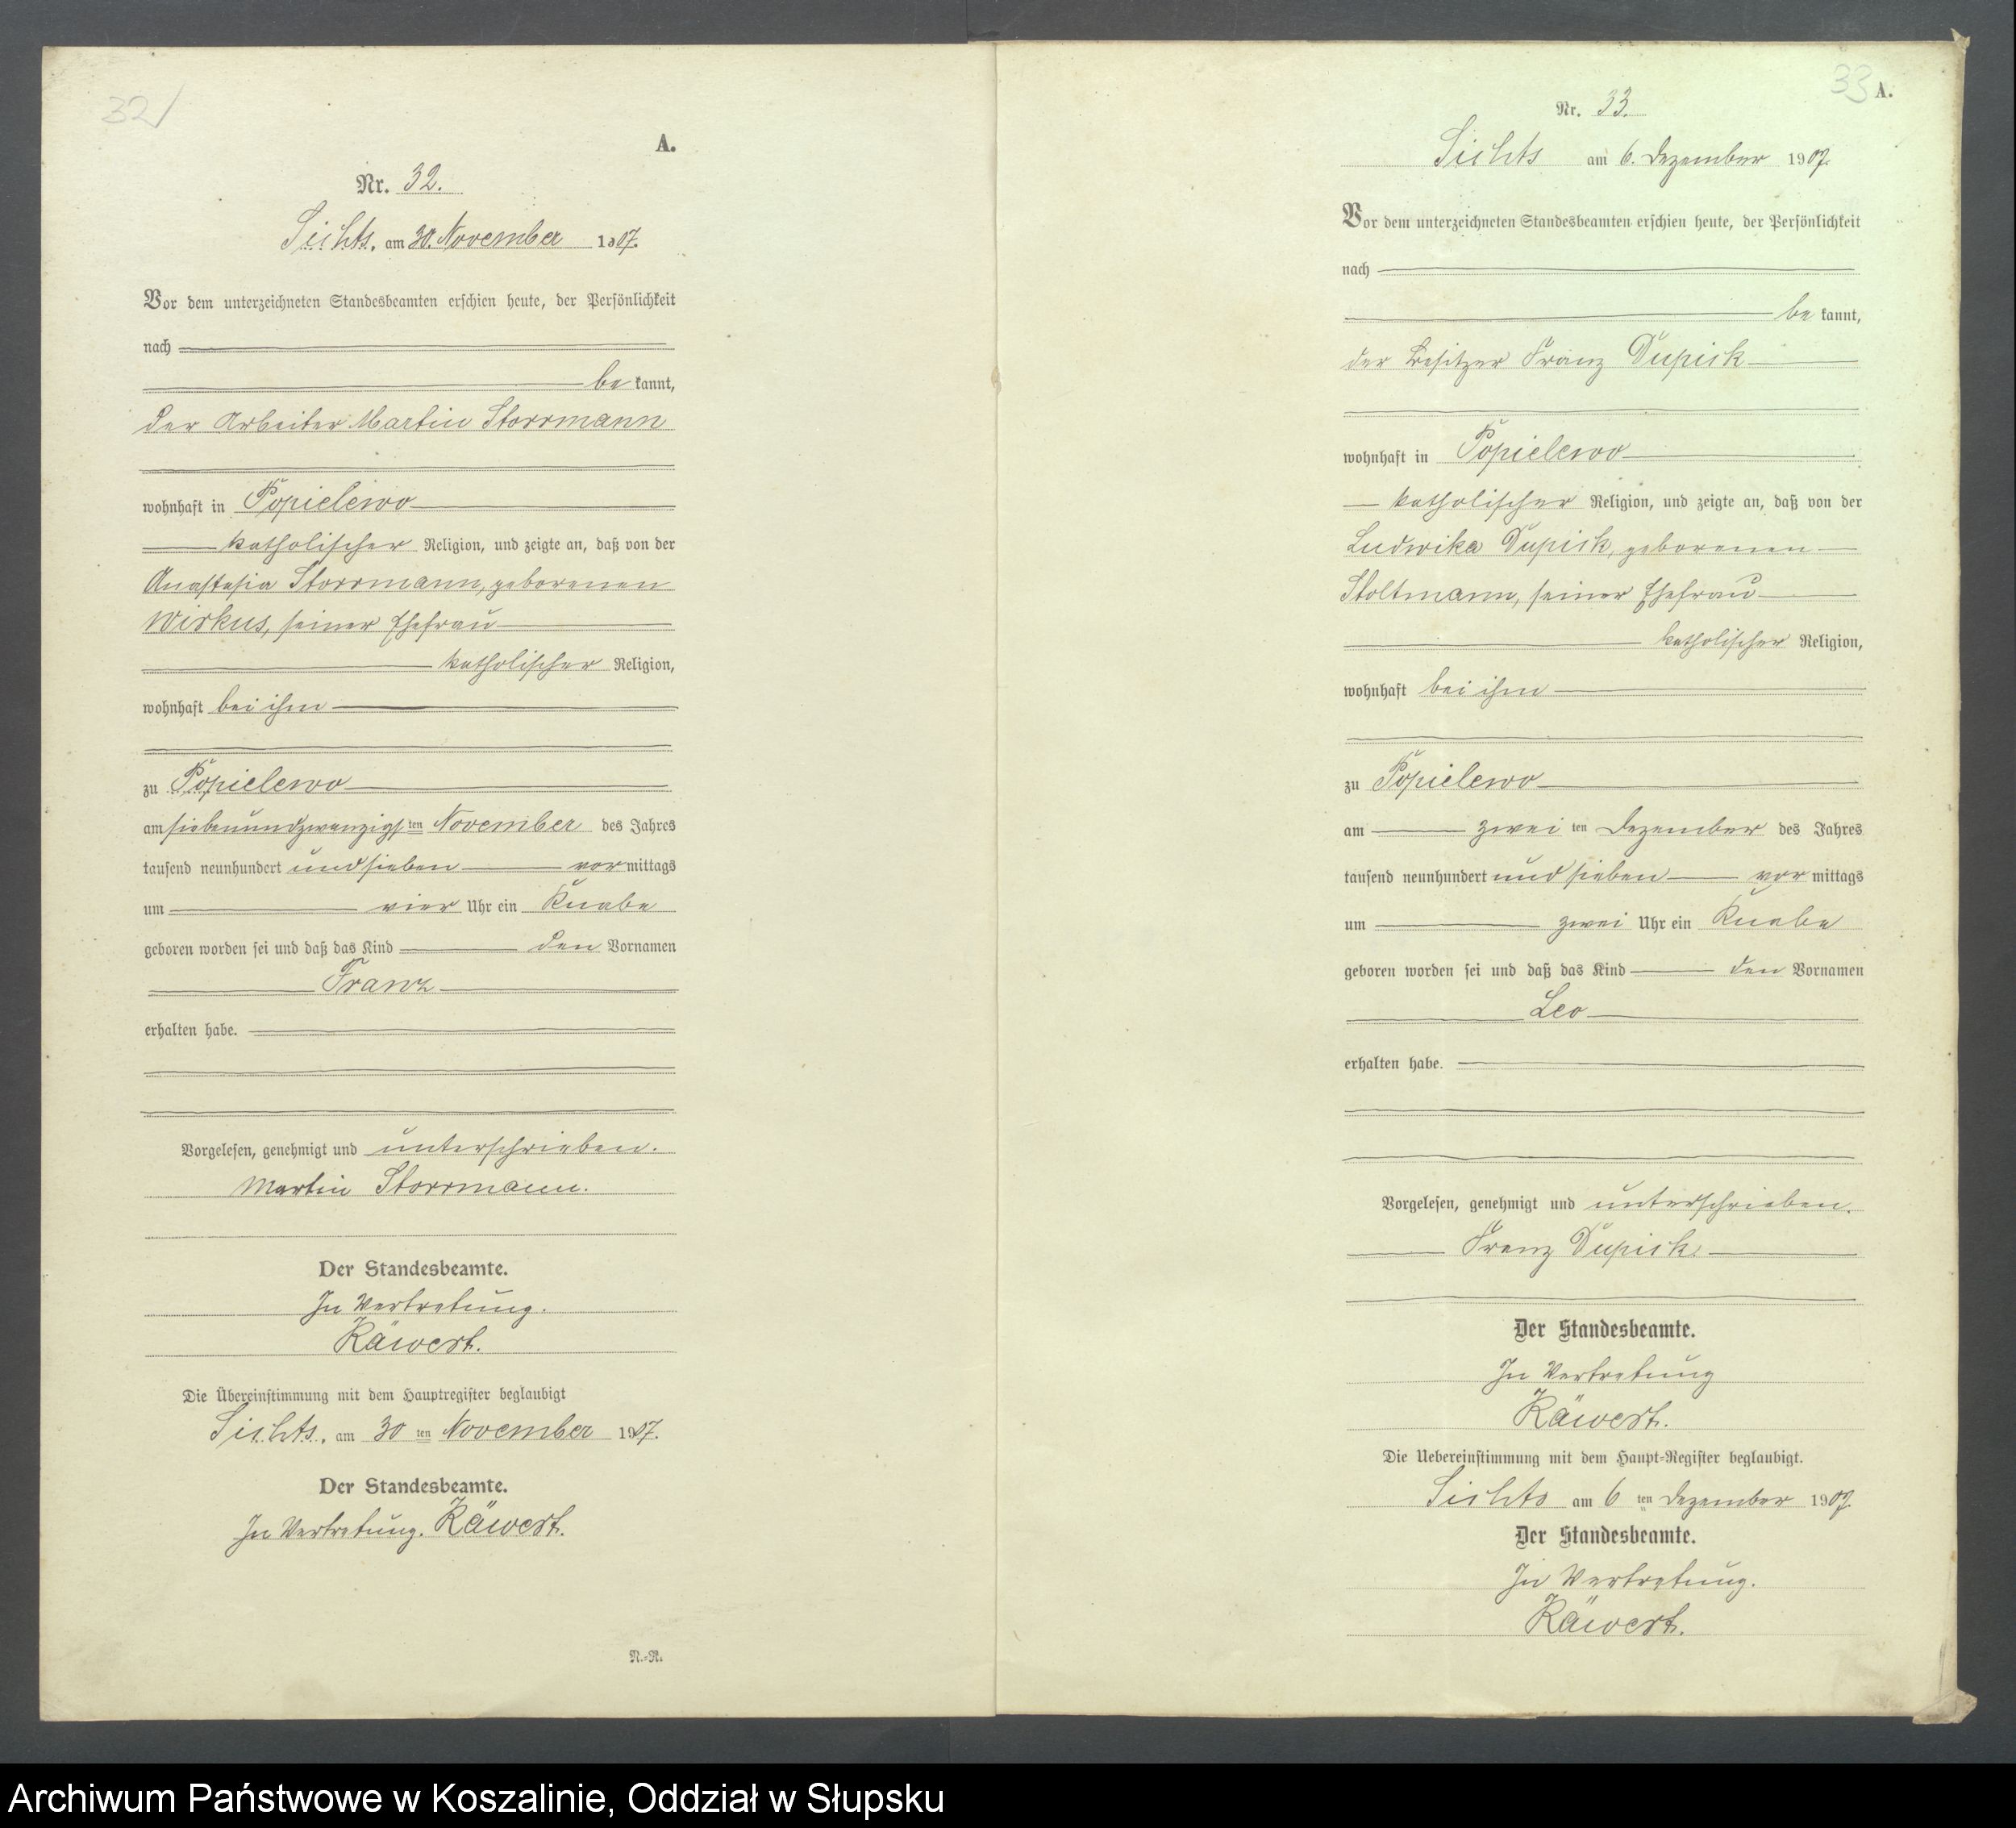 32
A.
Nr. 32.
Sichts, am 30. November 1907.
Vor dem unterzeichneten Standesbeamten erschien heute, der Persönlichkeit
nach
be kannt,
der Arbeiter Martin Storrmann
wohnhaft in Popielewo
katholischer Religion, und zeigte an, daß von der
Anastasia Storrmann, geborenen
Wirkus, seiner Ehefrau
katholischer Religion,
wohnhaft bei ihm
zu Popielewo
am siebenundzwanzigsten November des Jahres
tausend neunhundert und sieben vormittags
um vier Uhr ein Knabe
geboren worden sei und daß das Kind den Vornamen
Franz
erhalten habe.
Vorgelesen, genehmigt und unterschrieben.
Martin Storrmann.
Der Standesbeamte.
In Vertretung.
Räwert.
Die Übereinstimmung mit dem Hauptregister beglaubigt
Sichts, am 30 ten November 1907.
Der Standesbeamte.
In Vertretung. Räwert.
N.-R.
33 A.
Nr. 33.
Sichts am 6. Dezember 1907.
Vor dem unterzeichneten Standesbeamten erschien heute, der Persönlichkeit
nach
be kannt,
der Besitzer Franz Dupisk
wohnhaft in Popielewo
katholischer Religion, und zeigte an, daß von der
Ludwika Dupisk, geborenen
Stoltmann, seiner Ehefrau
katholischer Religion,
wohnhaft bei ihm
zu Popielewo
am zwei ten Dezember des Jahres
tausend neunhundert und sieben vor mittags
um zwei Uhr ein Knabe
geboren worden sei und daß das Kind den Vornamen
Leo
erhalten habe.
Vorgelesen, genehmigt und unterschrieben.
Franz Dupisk
Der Standesbeamte.
In Vertretung
Räwert.
Die Uebereinstimmung mit dem Haupt-Register beglaubigt.
Sichts am 6 ten Dezember 1907.
Der Standesbeamte.
In Vertretung.
Räwert.
Archiwum Państwowe w Koszalinie, Oddział w Słupsku